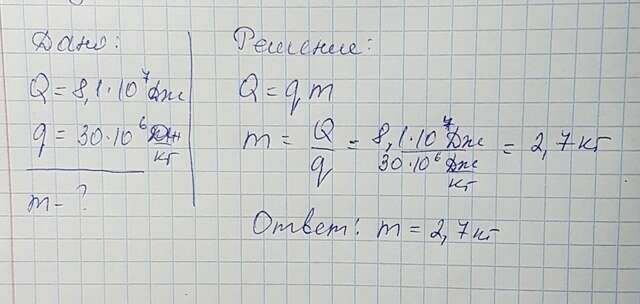 Дано:
Q = 8,1·10⁷ Дж
q = 30·10⁶ Дж/кг
m – ?
Решение:
Q = qm
m = Q/q = 8,1·10⁷ Дж / 30·10⁶ Дж/кг = 2,7 кг
Ответ: m = 2,7 кг